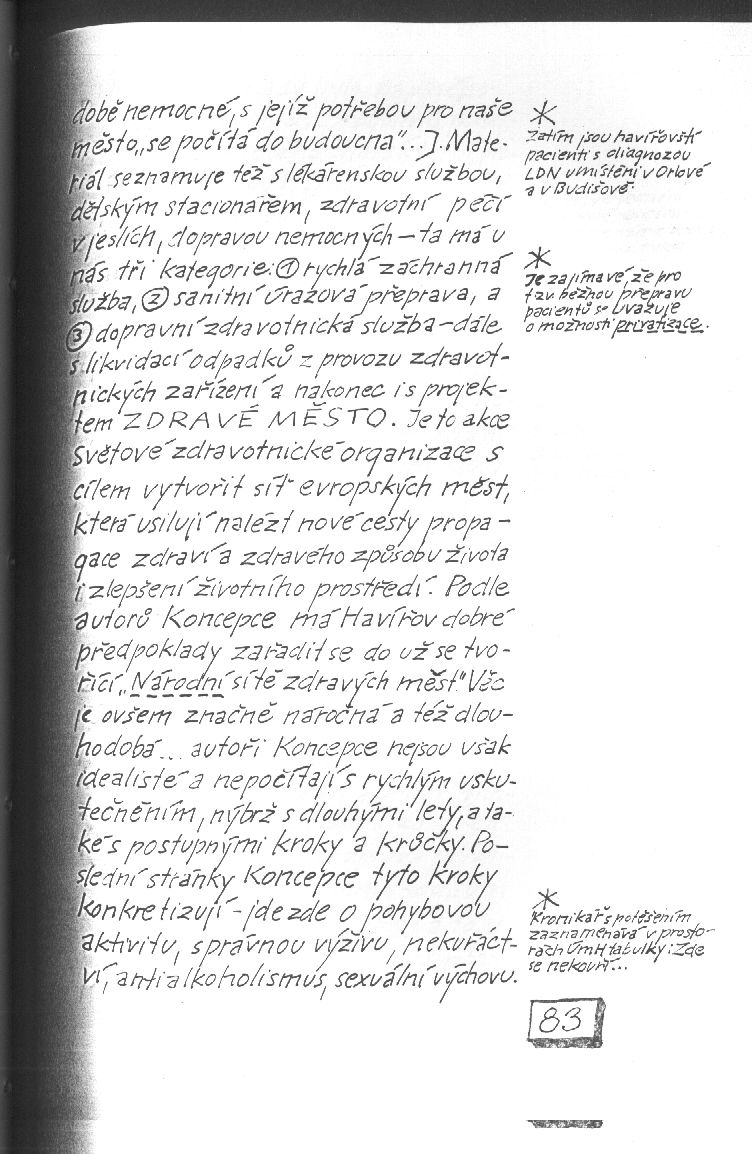 době nemocné, s jejíž potřebou pro naše
město „se počítá do budoucna"...]. Mate-
riál seznamuje též s lékárenskou službou,
dětským stacionářem, zdravotní péčí
v jeslích, dopravou nemocných – ta má u
nás tři kategorie: ① rychlá záchranná
služba, ② sanitní úrazová přeprava, a
③ dopravní zdravotnická služba – dále
s likvidací odpadků z provozu zdravot-
nických zařízení a nakonec i s projek-
tem ZDRAVÉ MĚSTO. Je to akce
Světové zdravotnické organizace s
cílem vytvořit síť evropských měst,
která usilují nalézt nové cesty propa-
gace zdraví a zdravého způsobu života
i zlepšení životního prostředí. Podle
autorů Koncepce má Havířov dobré
předpoklady zařadit se do už se tvo-
řící „Národní sítě zdravých měst" Věc
je ovšem značně náročná a též dlou-
hodobá... autoři Koncepce nejsou však
idealisté a nepočítají s rychlým usku-
tečněním, nýbrž s dlouhými lety, a ta-
ké s postupnými kroky a krůčky. Po-
slední stránky Koncepce tyto kroky
konkretizují – jde zde o pohybovou
aktivitu, správnou výživu, nekuřáct-
ví, antialkoholismus, sexuální výchovu.
*
Zatím jsou havířovští
pacienti s diagnozou
LDN umístěni v Orlové
a v Budišově.
*
Je zajímavé, že pro
tzv. běžnou přepravu
pacientů se uvažuje
o možnosti privatizace.
*
Kronikář s potěšením
zaznamenává v prosto-
rách ÚmH tabulky: Zde
se nekouří...
83